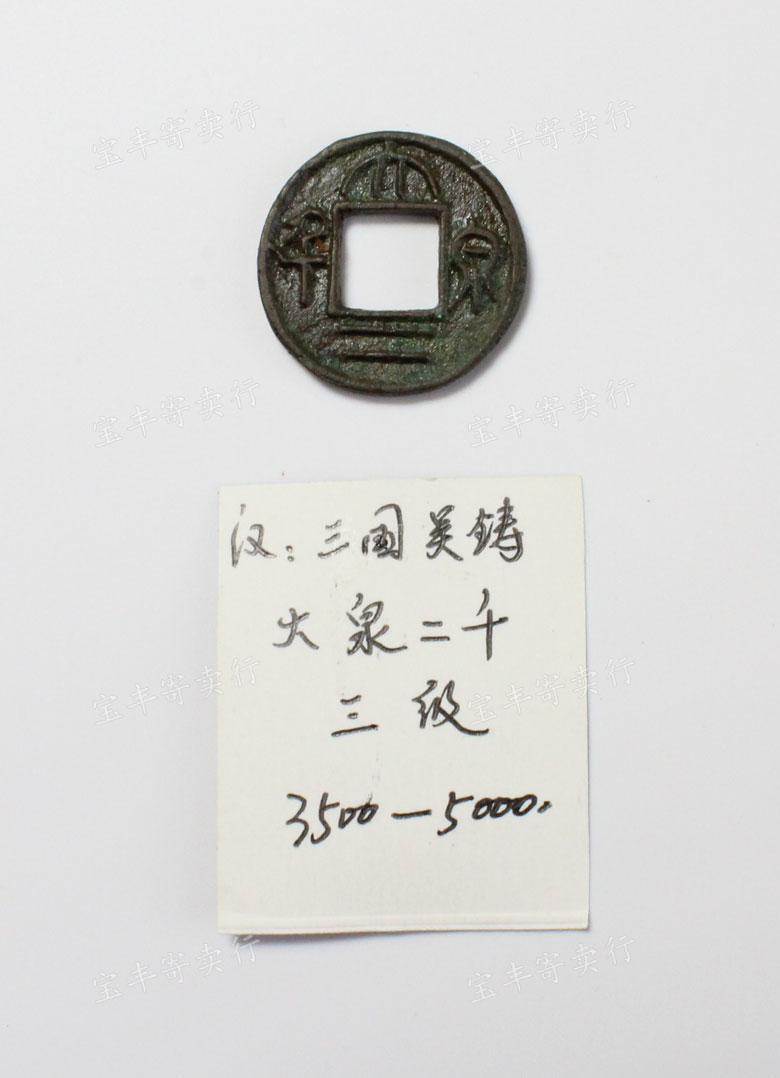 宝丰寄卖行
宝丰寄卖行
大泉二千
宝丰寄卖行
宝丰寄卖行
汉：三国吴铸
火泉二千
宝丰寄卖行
宝丰寄卖行
三级
3500—5000.
宝丰寄卖行
宝丰寄卖行